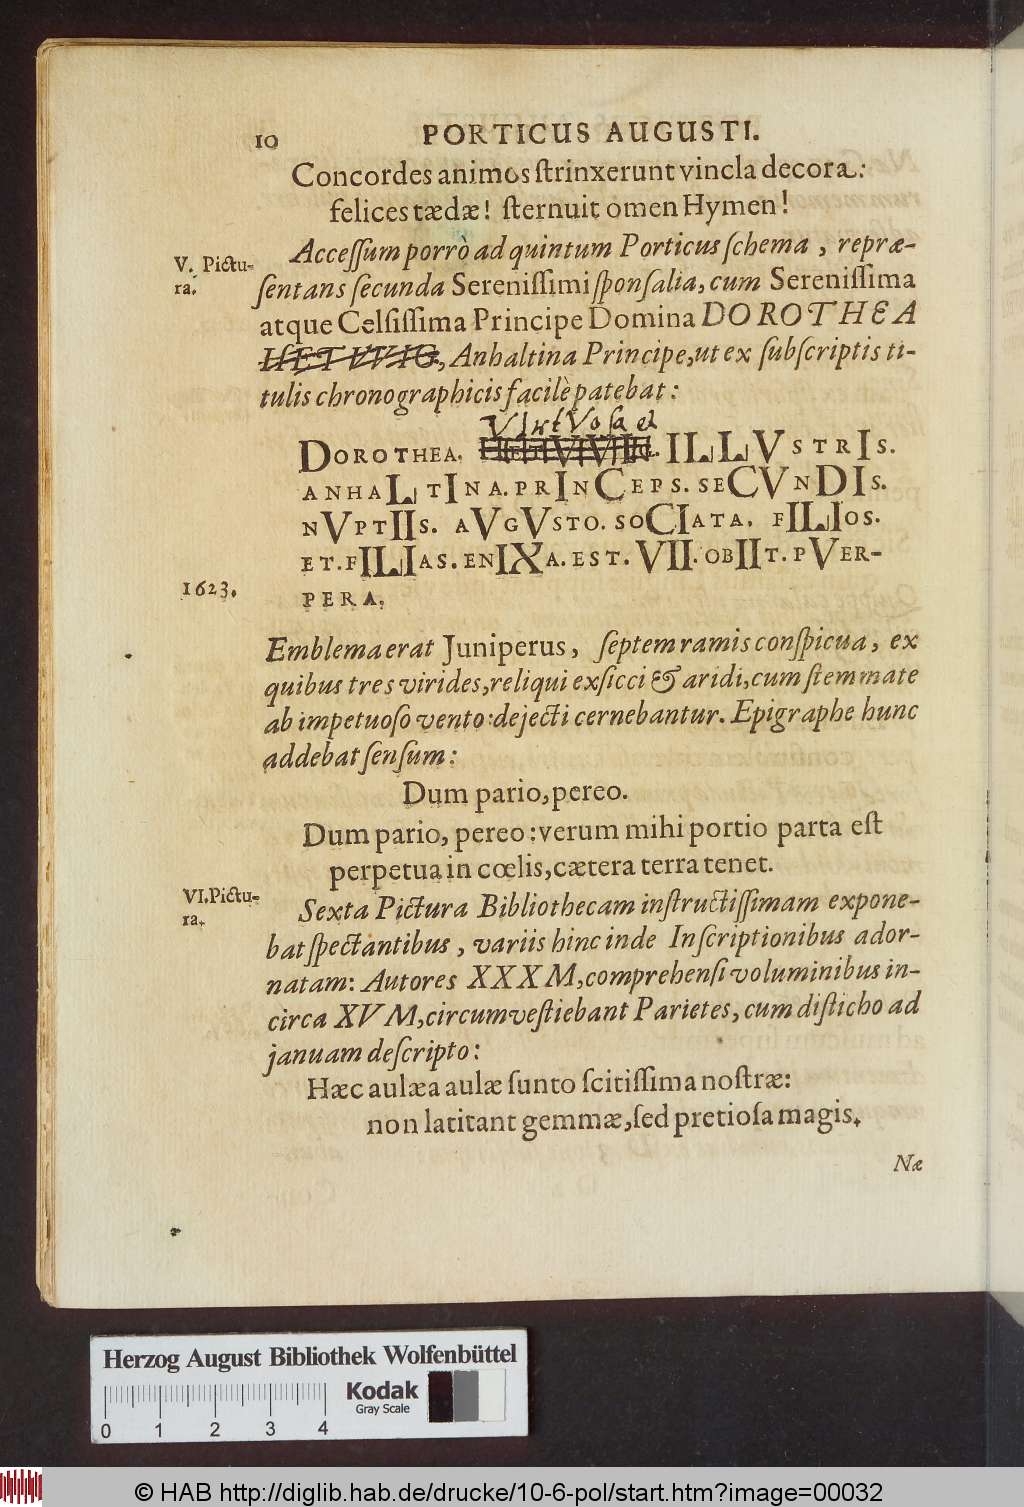 10 PORTICUS AUGUSTI.
Concordes animos ſtrinxerunt vincla decora:
felices tædæ! ſternuit omen Hymen!
V. Pictu-
ra.
Acceſſum porrò ad quintum Porticus ſchema, repræ-
ſentans ſecunda Sereniſſimi ſponſalia, cum Sereniſſima
atque Celſiſſima Principe Domina DOROTHEA
, Anhaltina Principe, ut ex ſubſcriptis ti-
tulis chronographicis facilè patebat:
DOROTHEA. ILLVSTRIS.
ANHALTINA. PRINCEPS. SECVNDIS.
NVPTIIS. AVGVSTO. SOCIATA. FILIOS.
ET. FILIAS. ENIXA. EST. VII. OBIIT. PVER-
1623.
PERA.
Emblema erat Juniperus, ſeptem ramis conſpicua, ex
quibus tres virides, reliqui exſicci & aridi, cum ſtemmate
ab impetuoſo vento: dejecti cernebantur. Epigraphe hunc
addebat ſenſum:
Dum pario, pereo.
Dum pario, pereo: verum mihi portio parta eſt
perpetua in cœlis, cætera terra tenet.
VI. Pictu-
ra.
Sexta Pictura Bibliothecam inſtructiſſimam expone-
bat ſpectantibus, variis hinc inde Inſcriptionibus ador-
natam: Autores XXXM, comprehenſi voluminibus in-
circa XVM, circumveſtiebant Parietes, cum diſticho ad
januam deſcripto:
Hæc aulæa aulæ ſunto ſcitiſſima noſtræ:
non latitant gemmæ, ſed pretioſa magis.
Næ
Herzog August Bibliothek Wolfenbüttel
Kodak
Gray Scale
0 1 2 3 4
© HAB http://diglib.hab.de/drucke/10-6-pol/start.htm?image=00032